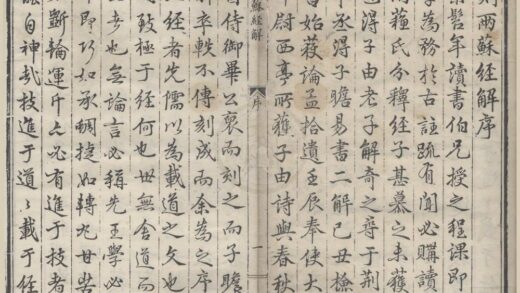 刻兩蘇經解序
髫年讀書伯兄授之程課即
學為務於古註疏有聞必購讀
蘇氏分釋經子甚慕之未獲
也得子由老子解奇之尋于荊
中丞得子瞻易書二解己丑檢
書始獲論孟拾遺壬辰奉使大
中尉西亭所獲子由詩與春秋
蘇經解 序 一
侍御畢公裒而刻之而子瞻
解卒軼不傳刻成而余為之序
經者先儒以為載道之文也
致極于經何也世無舍道而
吾也無論言必稱先王學必
即巧如承蜩捷如轉丸甘苦
斲輪運斤亦必有進于技者
自神哉技進于道道載于經